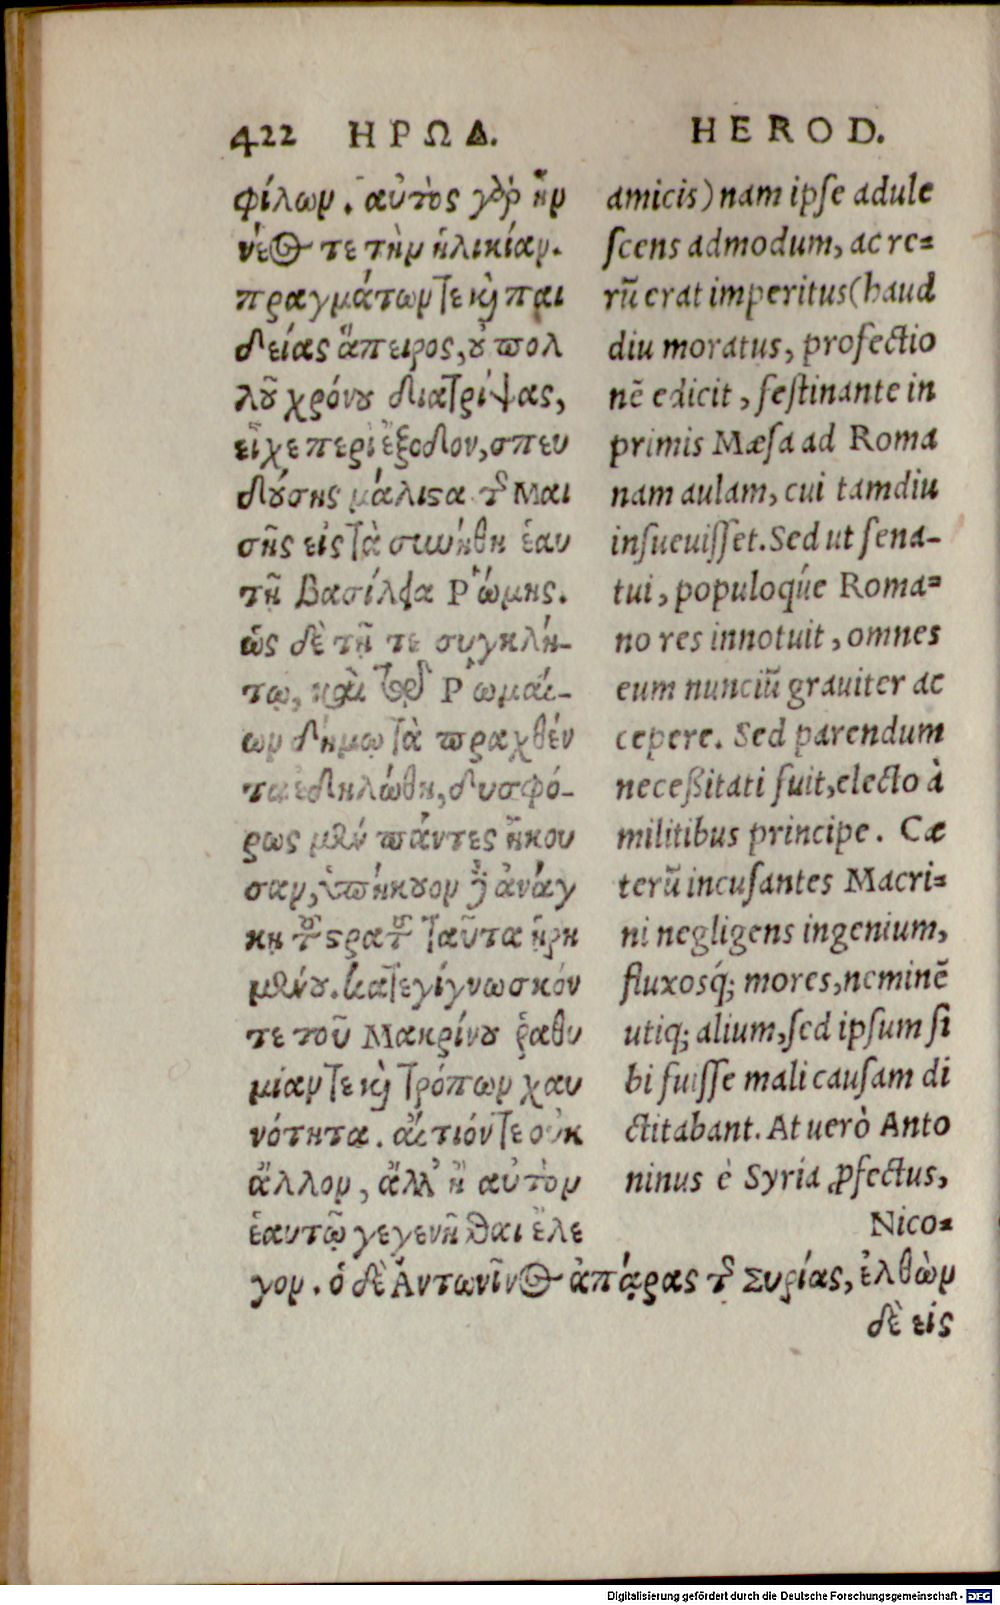 422 ΗΡΩΔ.
φίλων. αὐτὸς γὸρ ἦν
νέος τε τὴν ἡλικίαν.
πραγμάτων τε καὶ παι
δείας ἄπειρος, οὐ πολ
λοῦ χρόνου διατρίψας,
εἶχε περὶ ἔξοδον, σπευ
δούσης μάλιστα τῆς Μαι
σης εἰς τὰ συνήθη ἑαυ
τῇ βασίλεια Ῥώμης.
ὡς δὲ τῇ τε συγκλή-
τῳ, καὶ τῷ Ῥωμαί-
ων δήμῳ τὰ πραχθέν
τα ἐδηλώθη, δυσφό-
ρως μὲν πάντες ἤκου
σαν, ὑπήκουον δὲ ἀνάγ
κῃ τοῦ στρατοῦ ταῦτα ᾑρη
μένου. κατεγίγνωσκόν
τε τοῦ Μακρίνου ῥαθυ
μίαν τε καὶ τρόπων χαυ
νότητα. αἴτιόν τε οὐκ
ἄλλον, ἄλλ' ἢ αὐτὸν
ἑαυτῷ γεγενῆσθαι ἔλε
γον. ὁ δὲ Ἀντωνῖνος ἀπάρας τῆς Συρίας, ἐλθὼν
δὲ εἰς
HEROD.
amicis) nam ipse adule
scens admodum, ac re=
rũ erat imperitus (haud
diu moratus, profectio
nẽ edicit, festinante in
primis Mæsa ad Roma
nam aulam, cui tamdiu
insueuisset. Sed ut sena-
tui, populoq́ue Roma=
no res innotuit, omnes
eum nunciũ grauiter ac
cepere. Sed parendum
neceßitati fuit, electo à
militibus principe. Cæ
terũ incusantes Macri=
ni negligens ingenium,
fluxosq́; mores, neminẽ
utiq; alium, sed ipsum si
bi fuisse mali causam di
ctitabant. At uerò Anto
ninus è Syria ꝓfectus,
Nico=
Digitalisierung gefördert durch die Deutsche Forschungsgemeinschaft - DFG